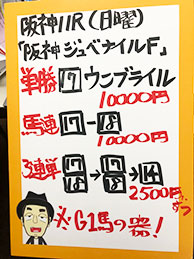 阪神11R(日曜)
「阪神ジュベナイルF」
単勝 17 ウンブライル
10000円
馬連 17-18
10000円
3連単 17 18→17 18→14
2500円ずつ
※G1馬の器!